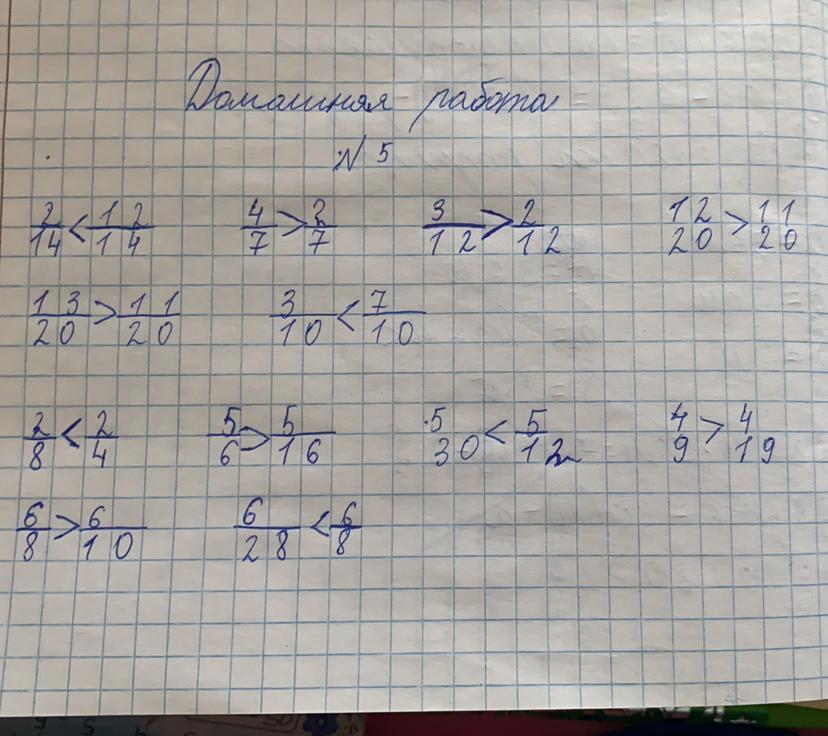 Домашняя работа
№ 5
2/14 < 12/14 4/7 > 2/7 3/12 > 2/12 12/20 > 11/20
13/20 > 11/20 3/10 < 7/10
2/8 < 2/4 5/6 > 5/16 5/30 < 5/12 4/9 > 4/19
6/8 > 6/10 6/28 < 6/8